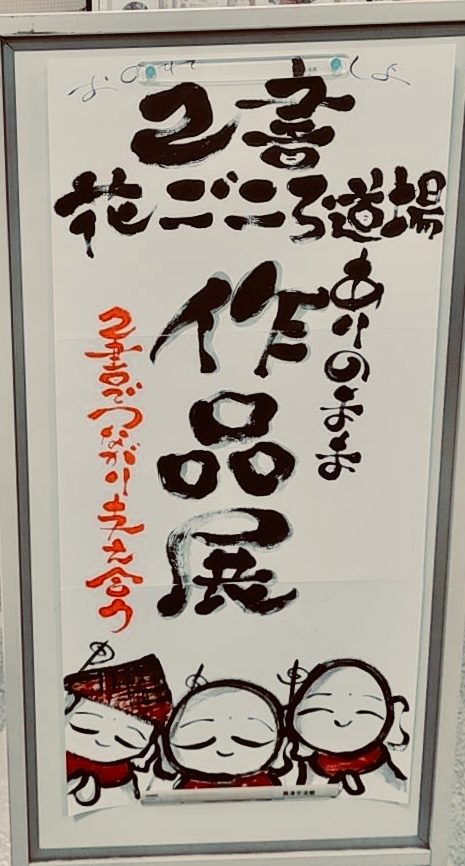 己書
花ごころ道場
ありのまま
作品展
己書でつながり支え合う